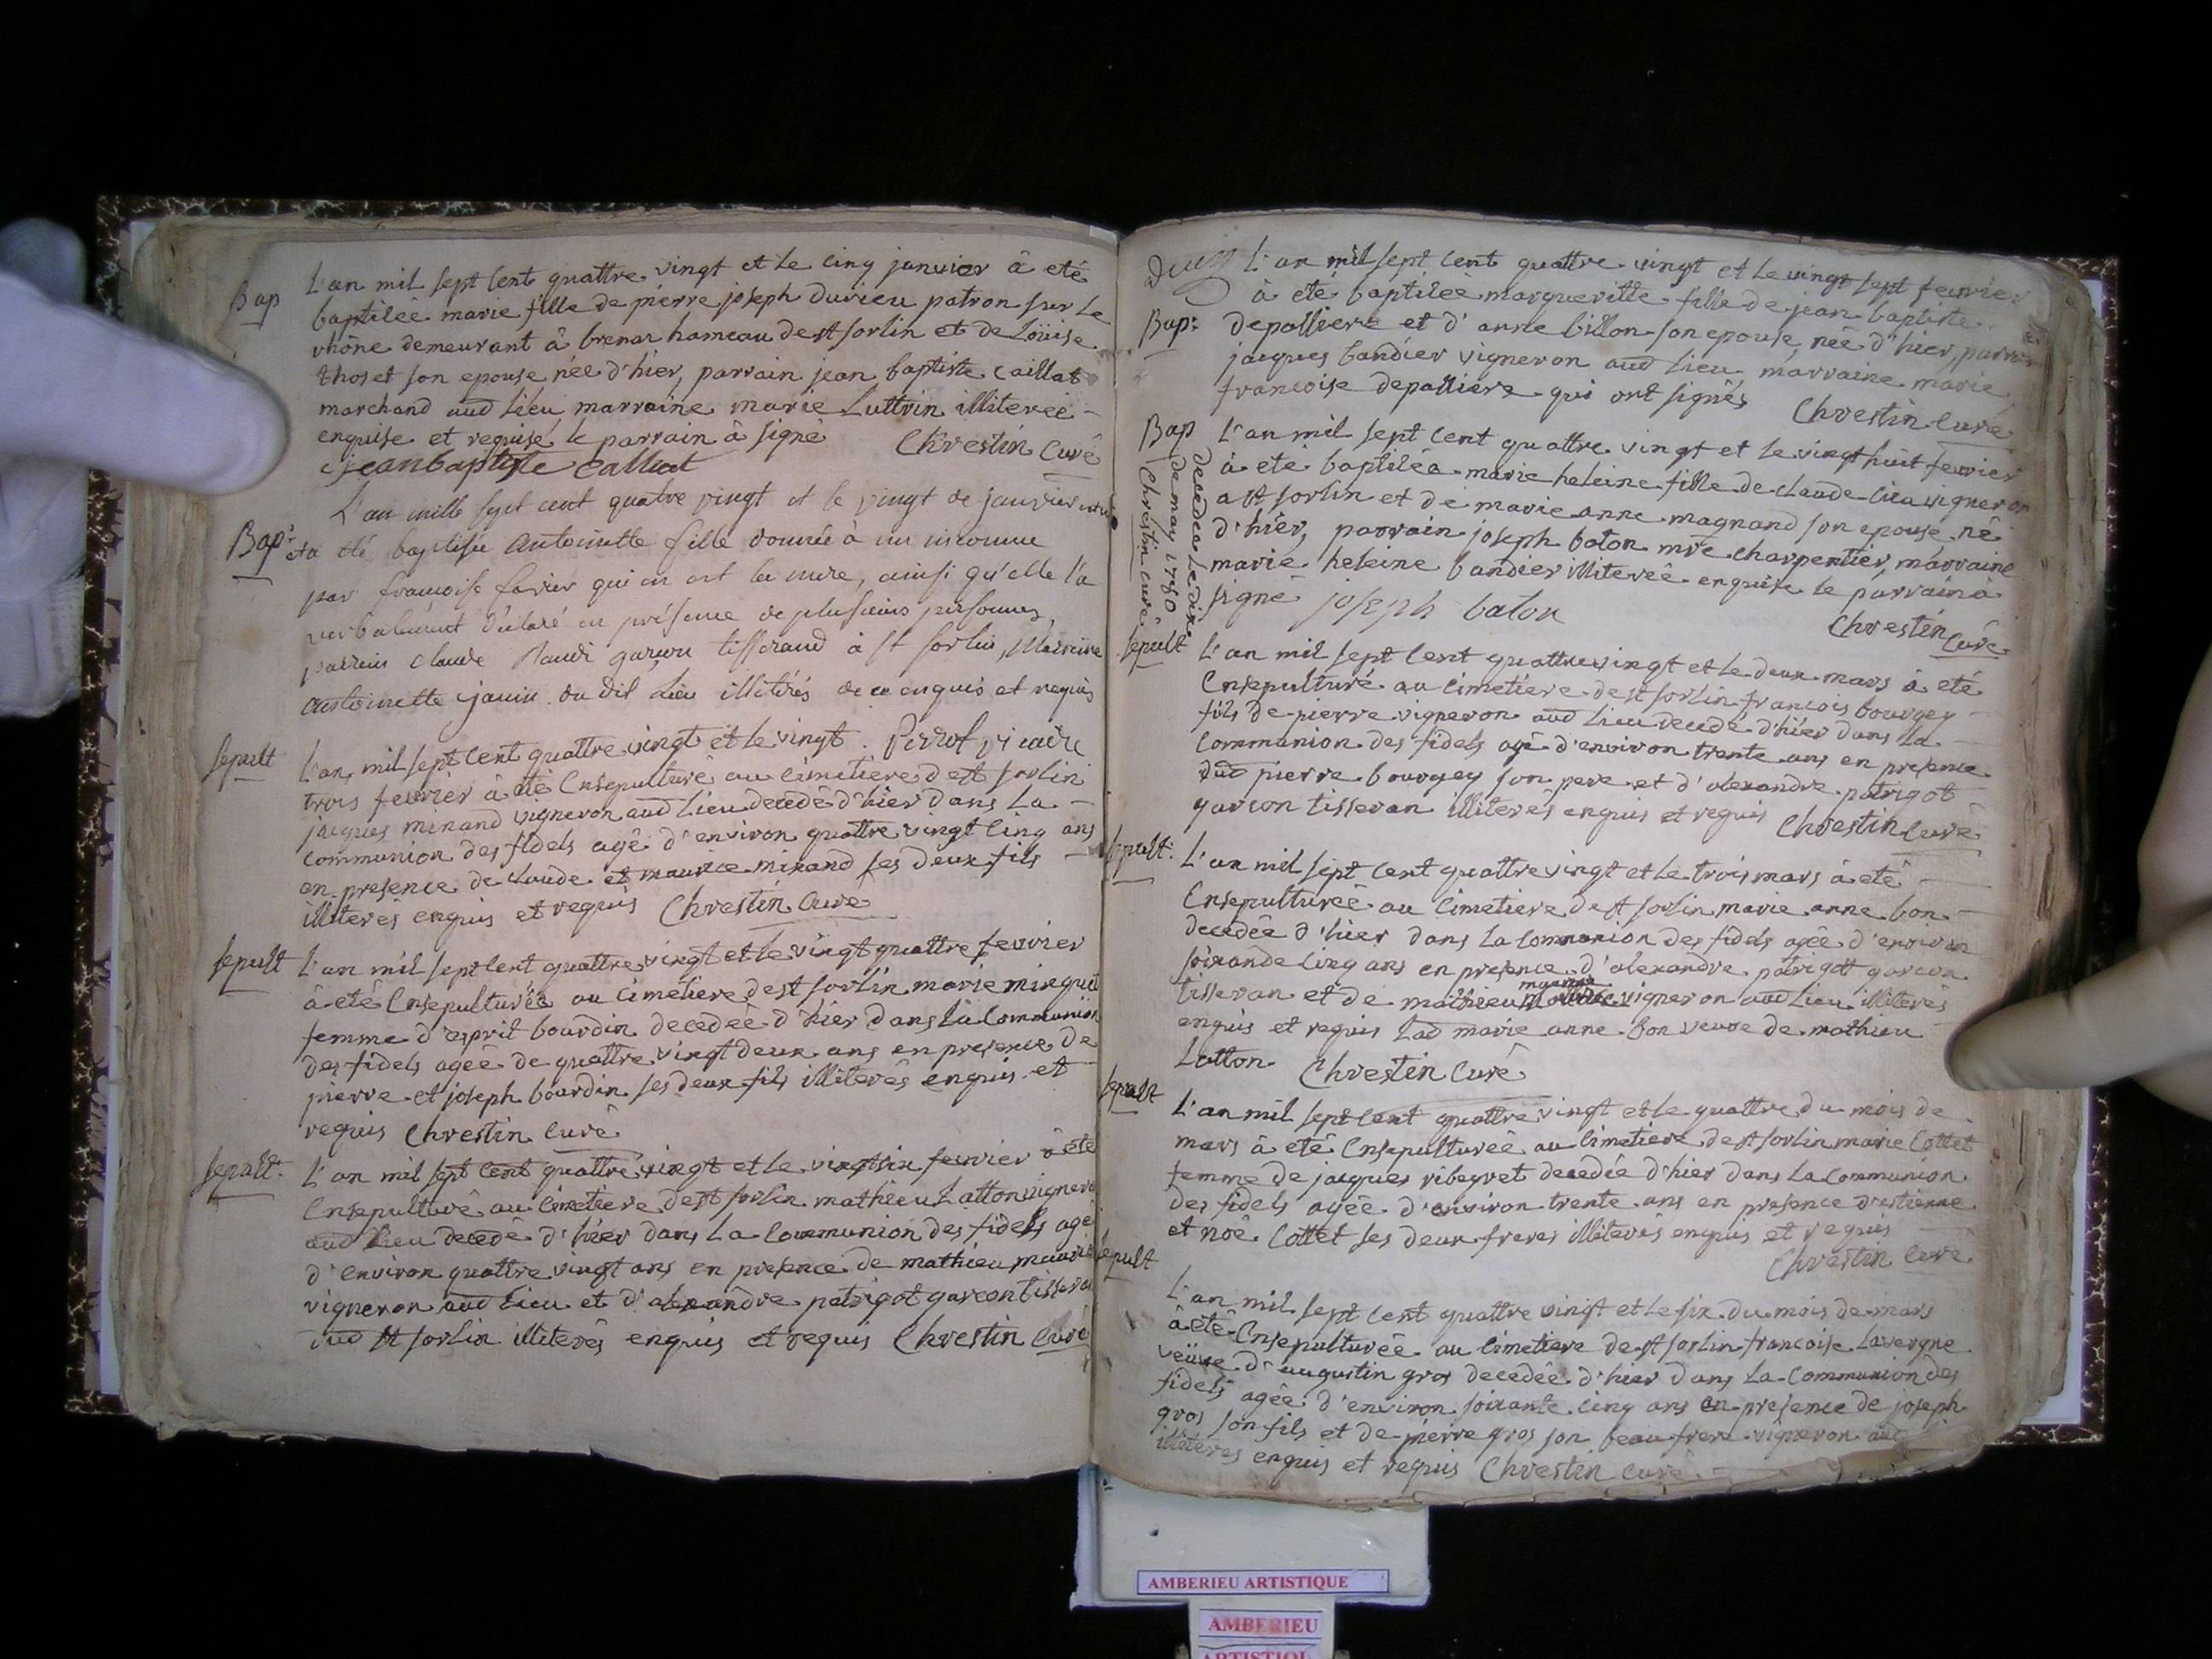 Bap
L'an mil sept cent quattre vingt et le cinq janvier à eté
baptisée marie fille de pierre joseph durieu patron sur le
rhône demeurant à brenar hameau de st sorlin et de Loüise
thoset son epouse née d'hier, parrain jean baptiste caillat
marchand aud lieu marraine marie Luttrin illitereé
enquise et requise le parrain à signé Chrestin Curé
jeanbaptiste Calliat
Bap:
L'an mille sept cent quatre vingt et le vingt de janvier
eta été baptisée Antoinette fille donnée à un inconnu
par françoise favier qui en est la mere, ainsi qu'elle l'a
verbalement déclaré en présence de plusieurs personnes,
parrain Claude garçon tisserand à st sorlin, Marreine
antoinette janin du dit Lieu illitérés de ce enquis et requis
Perrot vicaire
Sepult
L'an mil sept cent quattre vingt et le vingt
trois fevrier à eté Ensepulturé au cimetiere de st sorlin
jacques minand vigneron aud lieu decedé d'hier dans la
communion des fidels agé d'environ quattre vingt cinq ans
en presence de claude et maurice minand ses deux fils
illiterés enquis et requis Chrestin Curé
Sepult
L'an mil sept cent quattre vingt et le vingt quattre fevrier
à eté Ensepulturée au cimetiere de st sorlin marie minquet
femme d'esprit bourdin decedeé d'hier dans la Communion
des fidels ageé de quattre vingt deux ans en presence de
pierre et joseph bourdin ses deux fils illiterés enquis et
requis Chrestin Curé
Sepult:
L'an mil sept cent quattre vingt et le vingt six fevrier à eté
Ensepulturé au cimetiere de st sorlin mathieu Latton vigneron
aud lieu decedé d'hier dans la Communion des fidels agé
d'environ quattre vingt ans en presence de mathieu
vigneron aud lieu et d'alexandre patrigot garcon tisseran
dud st sorlin illiterés enquis et requis Chrestin Curé
deux
L'an mil sept cent quattre vingt et le vingt sept fevrier
à eté baptiseé margueritte fille de jean baptiste
Bap:
depalliere et d'anne billon son epouse, née d'hier, parrain
jacques bandier vigneron aud lieu marraine marie
francoise depalliere qui ont signés Chrestin Curé
Bap
decedée le dix
de may 1780
Chrestin Curé
L'an mil sept cent quattre vingt et le vingt huit fevrier
à eté baptiséa marie heleine fille de claude vigneron
a st sorlin et de marie anne magnand son epouse né
d'hier, parrain joseph baton mre charpentier, marraine
marie heleine bandier illitereé enquise le parrain à
signé joseph baton
Chrestin Curé
Sepult
L'an mil sept cent quattre vingt et le deux mars à eté
Ensepulturé au cimetiere de st sorlin francois bourgey
fils de pierre vigneron aud lieu decedé d'hier dans la
communion des fidels agé d'environ trente ans en presence
dud pierre bourgey son pere et d'alexandre patrigot
garcon tisseran illiterés enquis et requis Chrestin Curé
Sepult:
L'an mil sept cent quattre vingt et le trois mars à eté
Ensepultureé au cimetiere de st sorlin marie anne bon
decedée d'hier dans la Communion des fidels ageé d'environ
soixande cinq ans en presence d'alexandre patrigott garcon
tisseran et de mathieu vigneron aud lieu illiterés
enquis et requis Lad marie anne bon veuve de mathieu
Latton Chrestin Curé
Sepult
L'an mil sept cent quattre vingt et le quattre du mois de
mars à eté Ensepultureé au cimetiere de st sorlin marie Cottet
femme de jacques ribegret decedée d'hier dans la Communion
des fidels agée d'environ trente ans en presence d'estienne
et noé Cottet ses deux freres illiteres enquis et requis
Chrestin Curé
Sepult
L'an mil sept cent quattre vingt et le six du mois de mars
à eté Ensepulturée au cimetiere de st sorlin francoise Lavergne
veüve d'augustin gros decedée d'hier dans la Communion des
fidels agée d'environ soixante cinq ans en presence de joseph
gros son fils et de pierre gros son beau frere vigneron aud
illiteres enquis et requis Chrestin Curé
AMBERIEU ARTISTIQUE
AMBERIEU
ARTISTIQUE